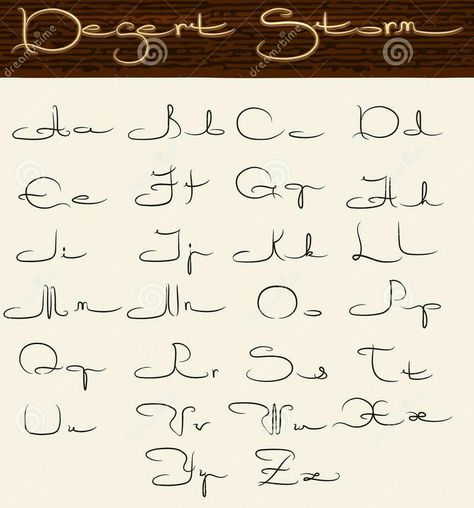 Desert Storm
Aa Bb Cc Dd
Ee Ff Gg Hh
Ii Jj Kk Ll
Mm Nn Oo Pp
Qq Rr Ss Tt
Uu Vv Ww Xx
Yy Zz
dreamstime